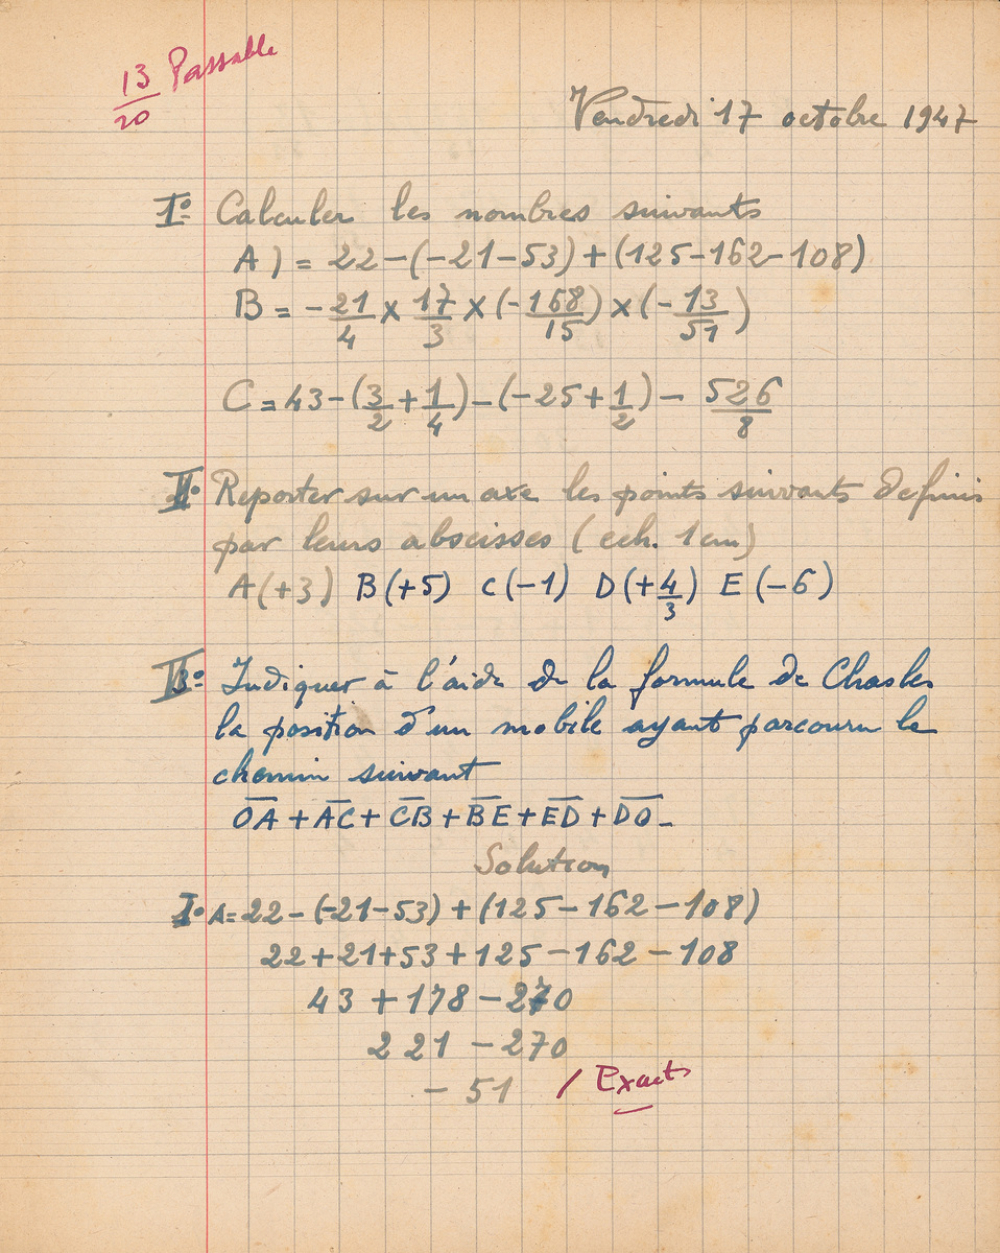 13/20 Passable
Vendredi 17 octobre 1947
I° Calculer les nombres suivants
A) = 22-(-21-53)+(125-162-108)
B = -21/4 × 17/3 × (-168/15) × (-13/51)
C = 43-(3/2+1/4)-(-25+1/2)- 526/8
II° Reporter sur un axe les points suivants definis
par leurs abscisses (ech. 1 cm)
A(+3) B(+5) C(-1) D(+4/3) E(-6)
Indiquer à l'aide de la formule de Chasles
la position d'un mobile ayant parcouru le
chemin suivant
O̅A̅ + A̅C̅ + C̅B̅ + B̅E̅ + E̅D̅ + D̅O̅ -
Solution
I° A=22-(-21-53)+(125-162-108)
22+21+53+125-162-108
43+178-270
221-270
-51 / Exacts